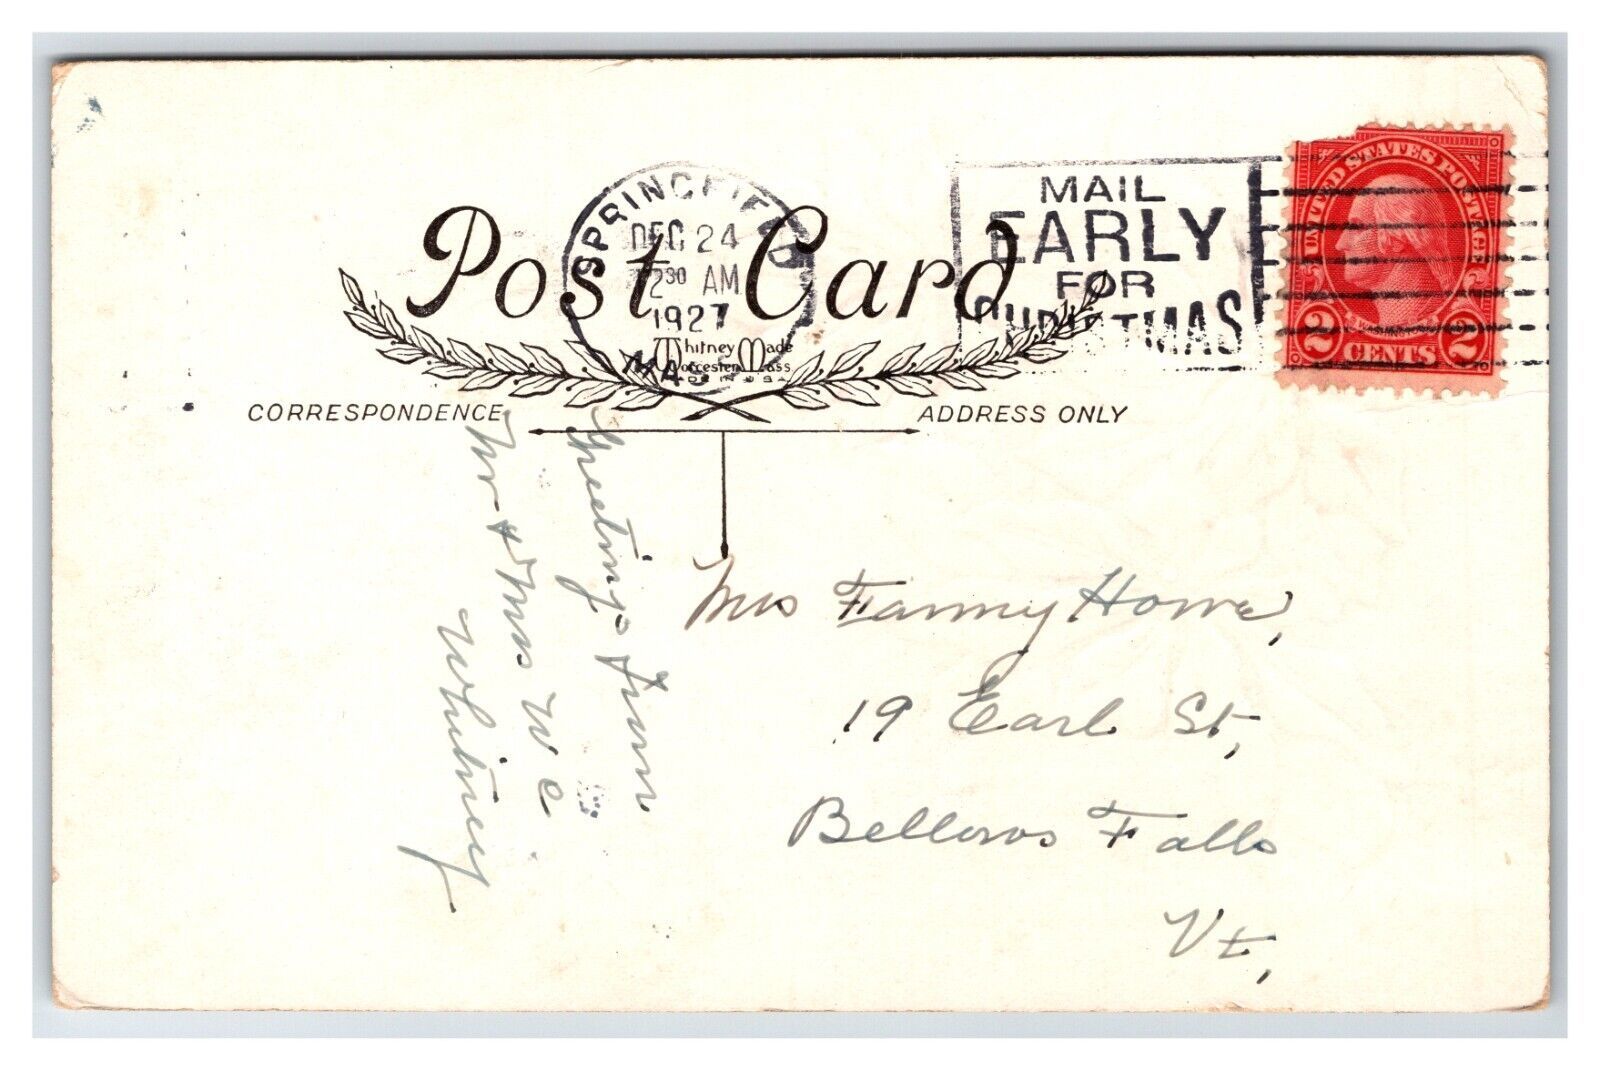 SPRINGFIELD
DEC 24
2 30 AM
1927
MASS
MAIL
EARLY
FOR
CHRISTMAS
UNITED STATES POSTAGE
WASHINGTON
2 CENTS 2
Post Card
Whitney Made
Worcester Mass
MADE IN USA
CORRESPONDENCE
ADDRESS ONLY
Greetings from
Mr + Mrs W C
Whitney
Mrs Fanny Howe,
19 Earl St,
Bellows Falls
Vt,